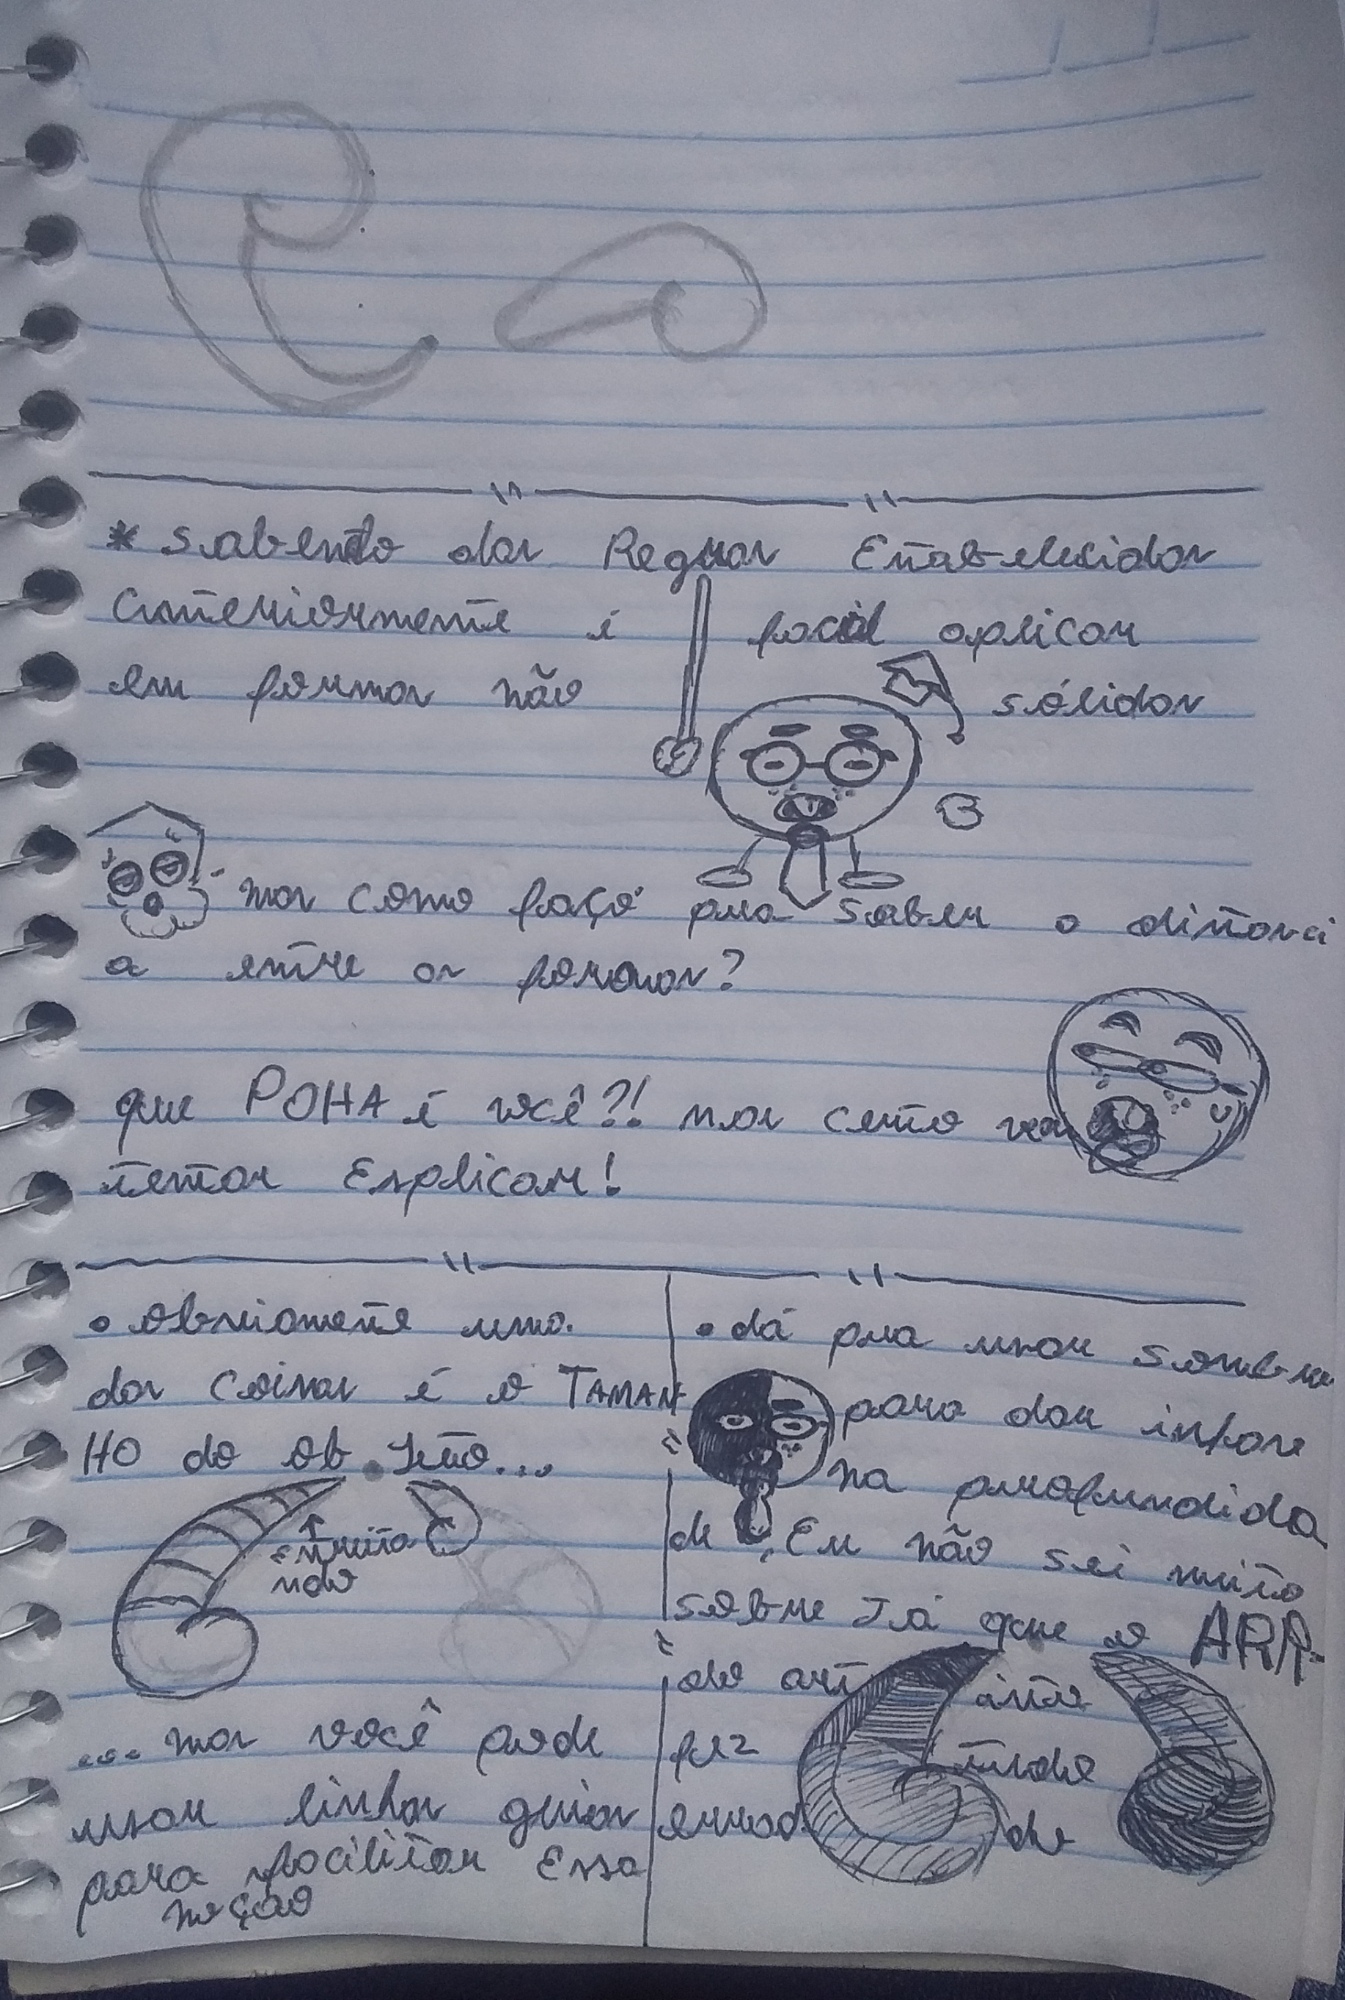 * sabendo das Regras Estabelecidas
anteriormente é facil aplicar
em formas não sólidas
mas como faço pra saber a distanci
a entre as formas?
que POHA é você?! mas certo vou
tentar Explicar!
• obviamente uma
das coisas é o TAMAN
HO do objeto...
↑
Enquita
ndo
... mas você pode
usar linhas guias
para facilitar Essa
noção
• dá pra usar sombra
para dar infase
na profundida
de, Eu não sei muito
sobre Já que o ARR-
do artista
fez tudo
errado